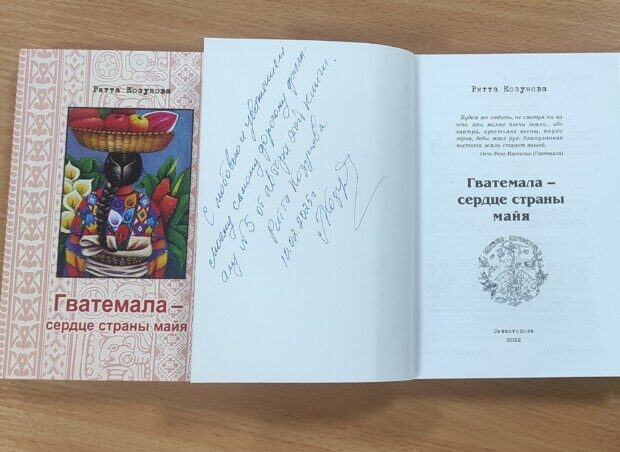 Ритта Козунова
Гватемала –
сердце страны майя
С любовью и уважением
моему самому дорогому филиа-
лу №5 от автора этой книги.
Ритта Козунова
10.02.2025г.
Ритта Козунова
Будем же любить, не смотря ни на
что, эти милые плечи земли, ибо
завтра, крестьяне весны, внуки
зерна, деды моих рук, благоуханная
чистота земли станет вашей.
Отто Рене Кастильо (Гватемала)
Гватемала –
сердце страны
майя
Севастополь
2022